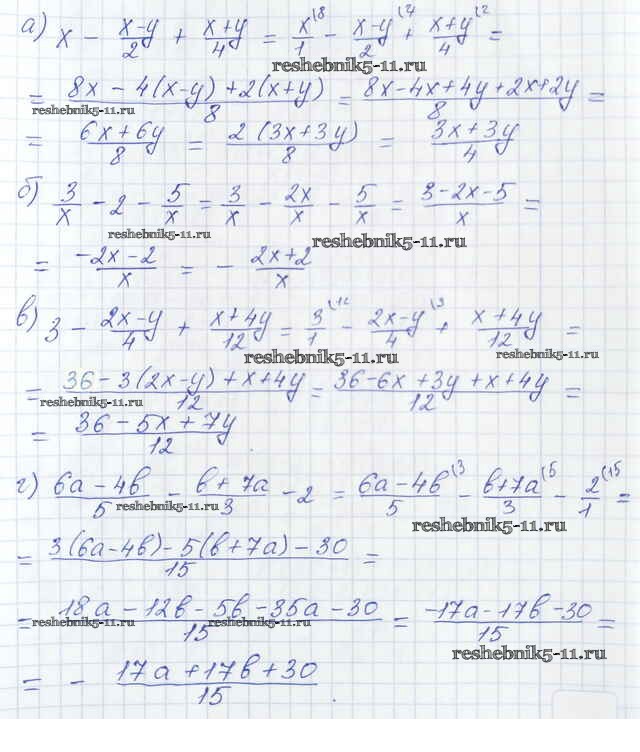 а) x − (x−y)/2 + (x+y)/4 = x/1 (8 − (x−y)/2 (4 + (x+y)/4 (2 =
reshebnik5-11.ru
= (8x − 4(x−y) + 2(x+y))/8 = (8x−4x+4y+2x+2y)/8 =
reshebnik5-11.ru
= (6x+6y)/8 = (2(3x+3y))/8 = (3x+3y)/4
б) 3/x − 2 − 5/x = 3/x − 2x/x − 5/x = (3−2x−5)/x =
reshebnik5-11.ru reshebnik5-11.ru
= (−2x−2)/x = − (2x+2)/x
в) 3 − (2x−y)/4 + (x+4y)/12 = 3/1 (12 − (2x−y)/4 (3 + (x+4y)/12 =
reshebnik5-11.ru reshebnik5-11.ru
= (36−3(2x−y)+x+4y)/12 = (36−6x+3y+x+4y)/12 =
reshebnik5-11.ru
= (36−5x+7y)/12.
г) (6a−4b)/5 − (b+7a)/3 − 2 = (6a−4b)/5 (3 − (b+7a)/3 (5 − 2/1 (15 =
reshebnik5-11.ru reshebnik5-11.ru
= (3(6a−4b)−5(b+7a)−30)/15 =
= (18a−12b−5b−35a−30)/15 = (−17a−17b−30)/15 =
reshebnik5-11.ru reshebnik5-11.ru
reshebnik5-11.ru
= − (17a+17b+30)/15.